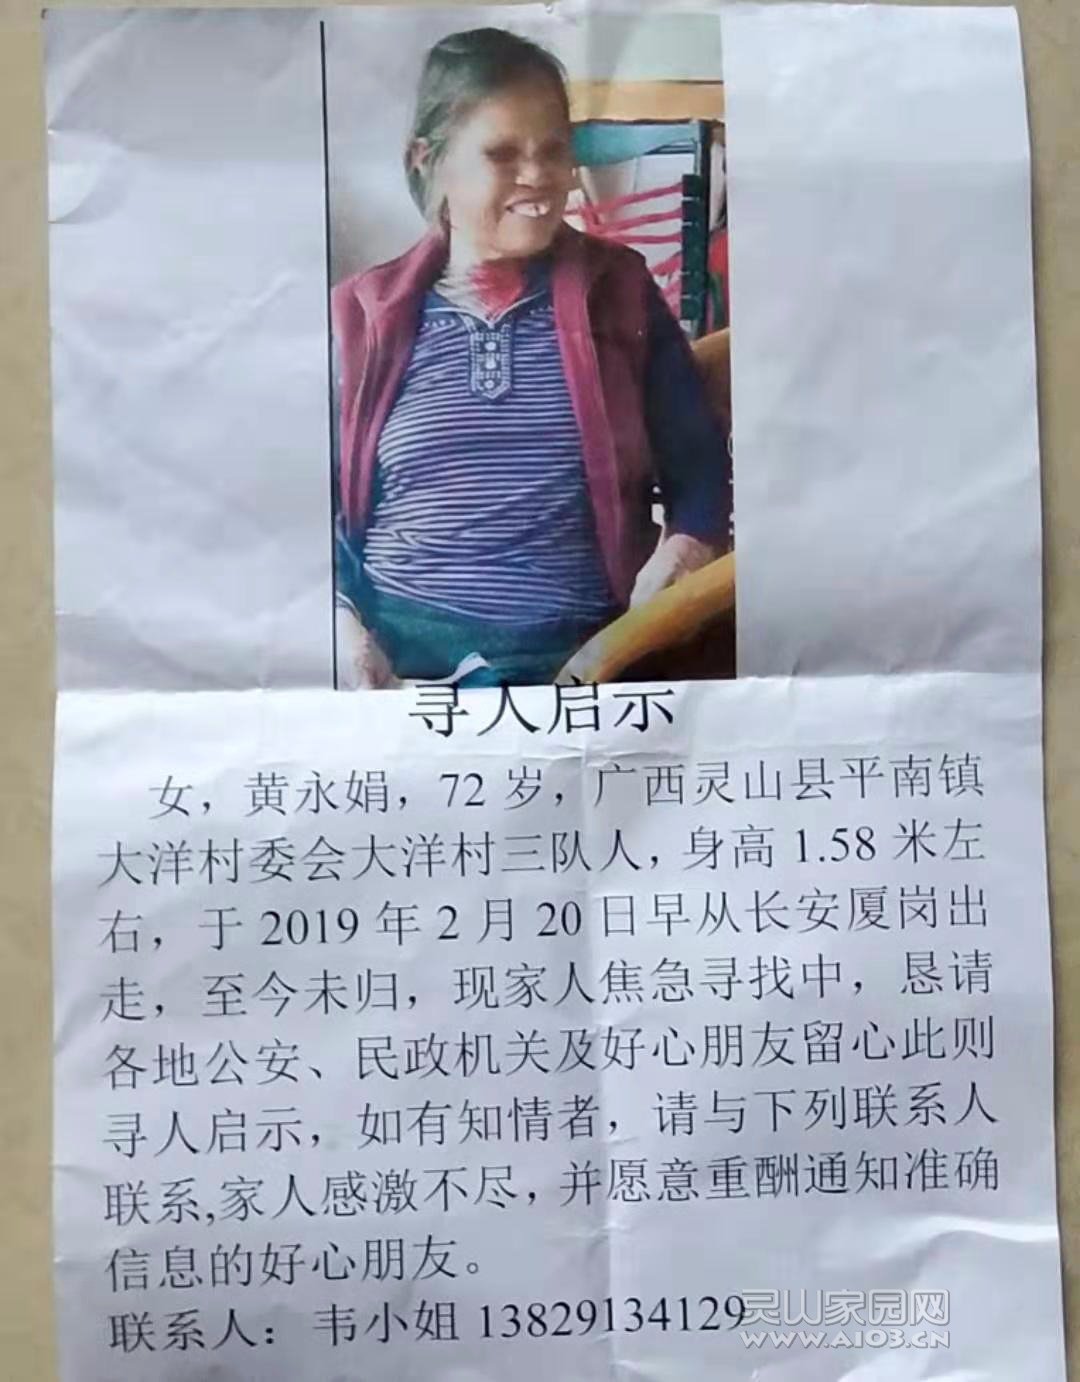 寻人启示
女，黄永娟，72 岁，广西灵山县平南镇
大洋村委会大洋村三队人，身高 1.58 米左
右，于 2019 年 2 月 20 日早从长安厦岗出
走，至今未归，现家人焦急寻找中，恳请
各地公安、民政机关及好心朋友留心此则
寻人启示，如有知情者，请与下列联系人
联系,家人感激不尽，并愿意重酬通知准确
信息的好心朋友。
联系人：韦小姐 13829134129
灵山家园网
WWW.A103.CN